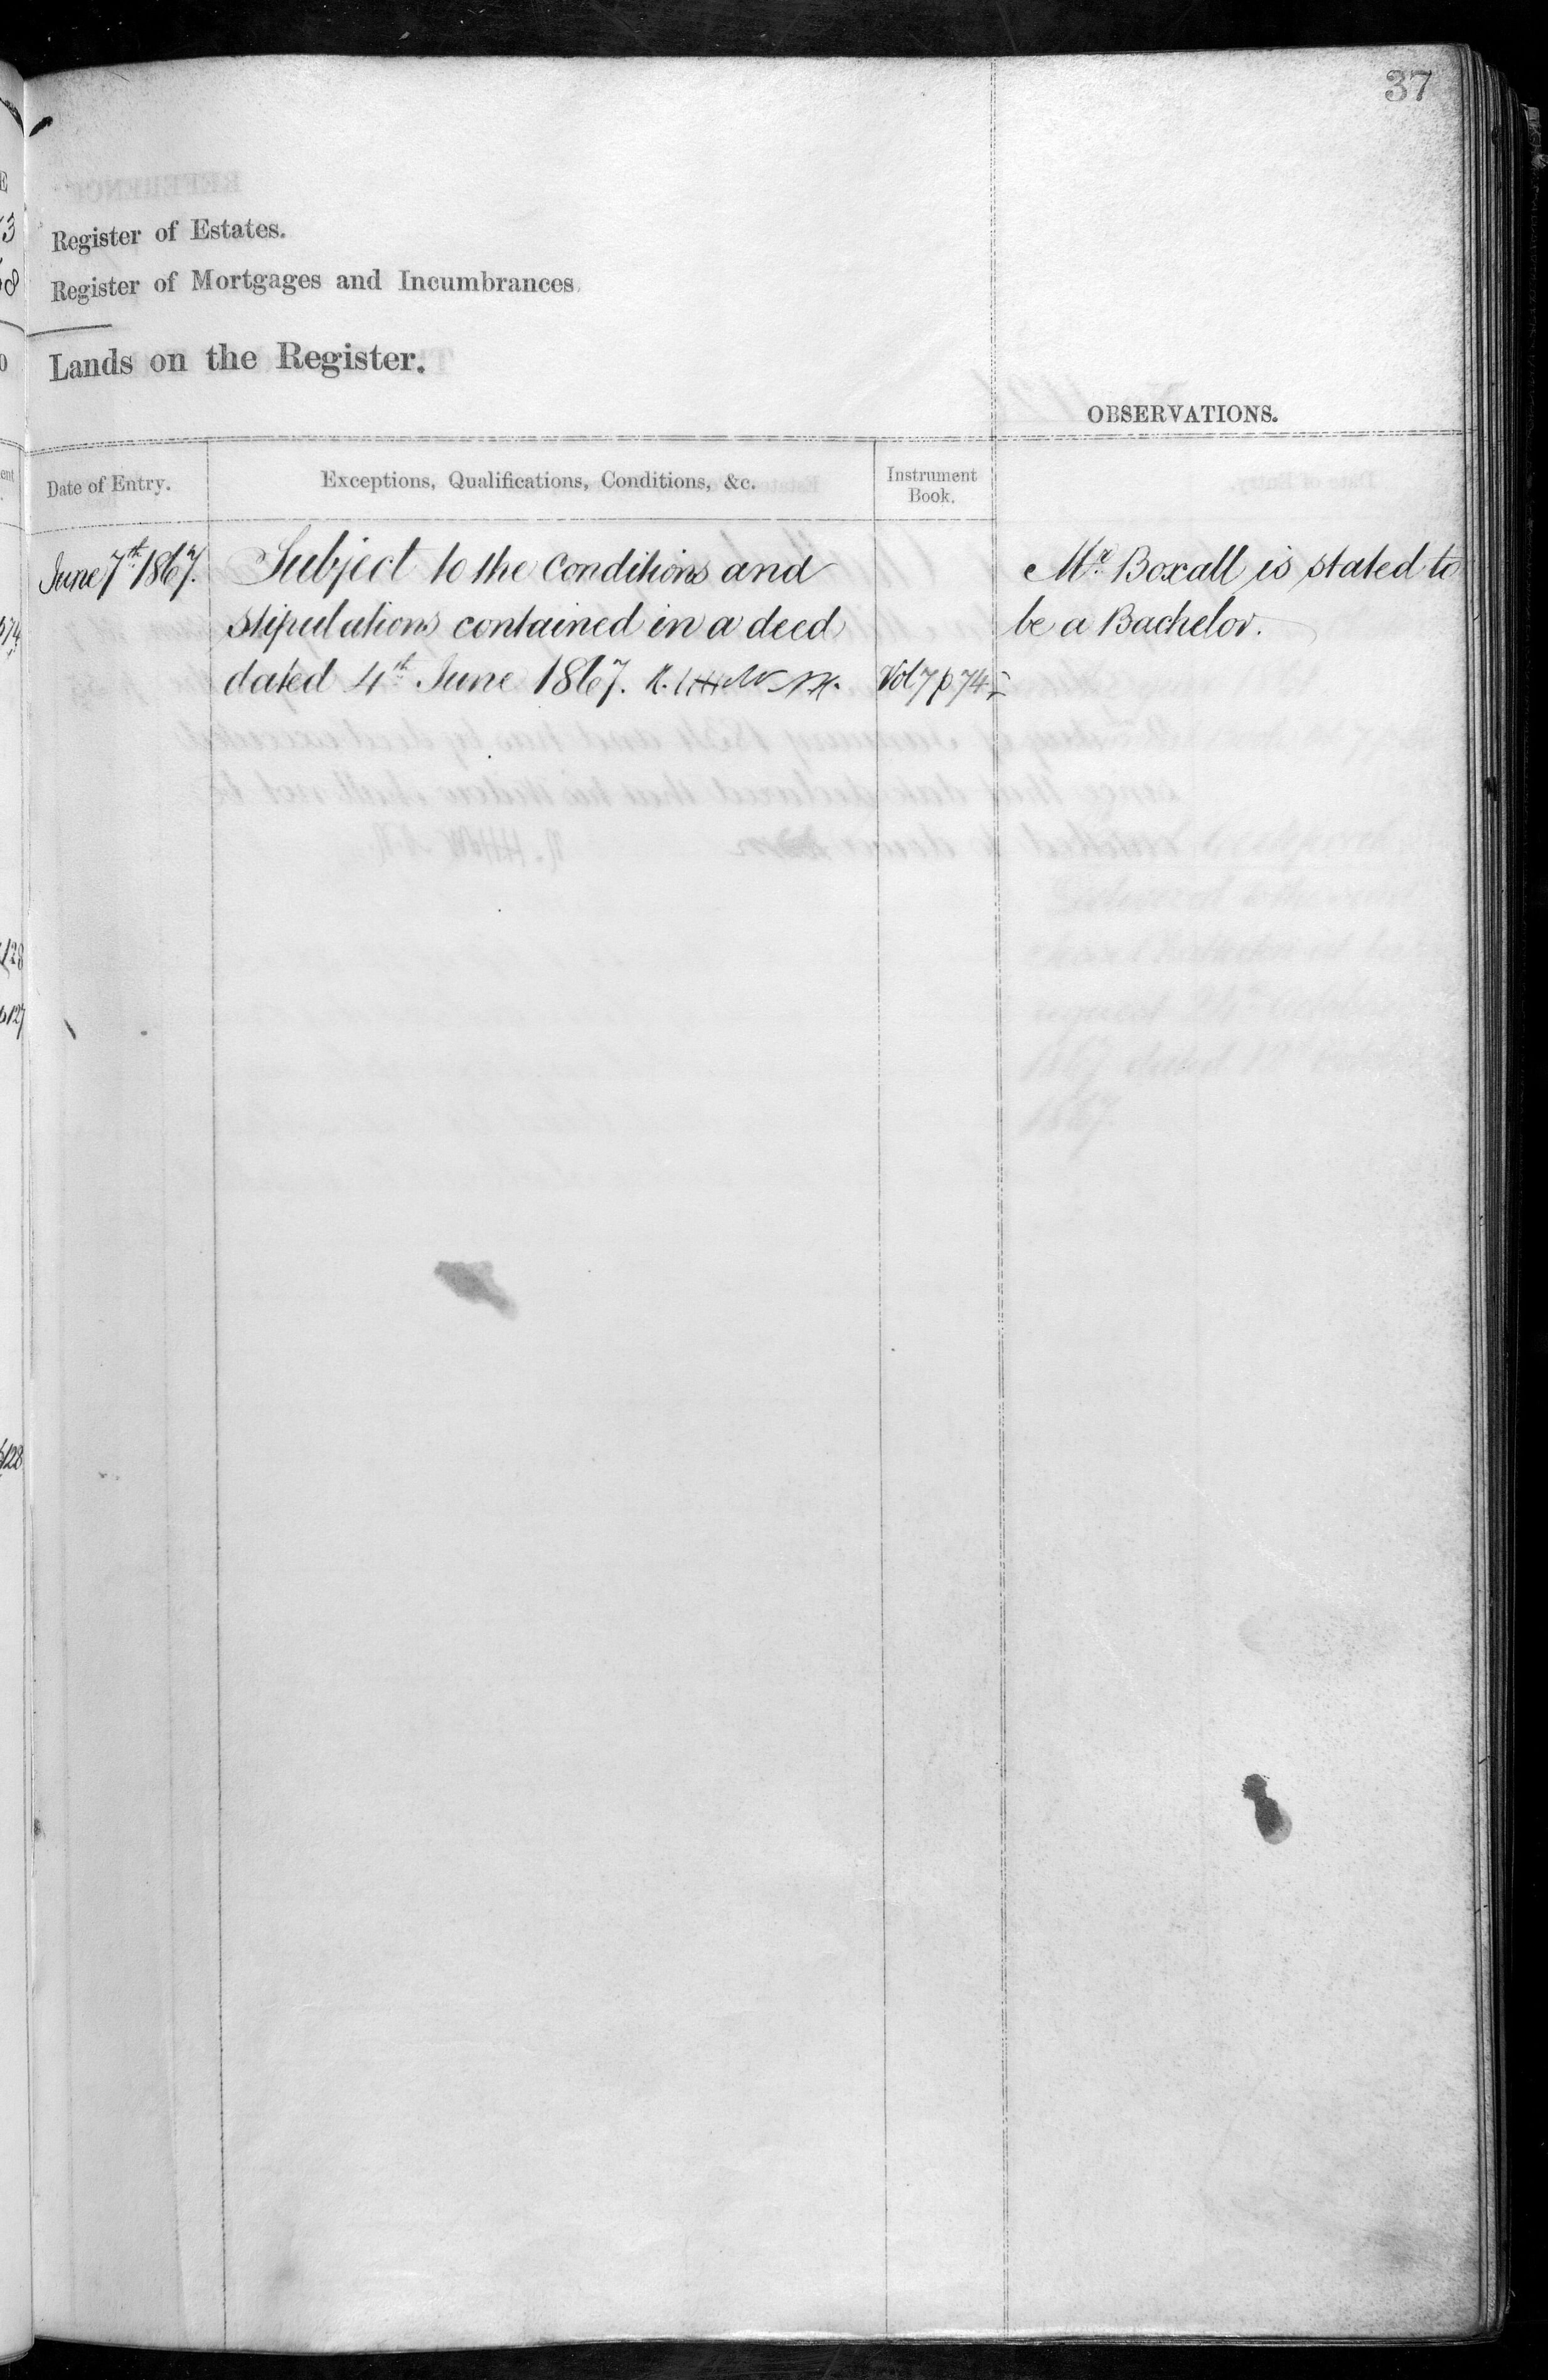 37
Register of Estates.
Register of Mortgages and Incumbrances
Lands on the Register.
OBSERVATIONS.
Date of Entry.
Exceptions, Qualifications, Conditions, &c.
Instrument
Book.
June 7th 1867.
Subject to the Conditions and
stipulations contained in a deed
dated 4th June 1867.
Vol 7 p 74
Mr. Boxall is stated to
be a Bachelor.